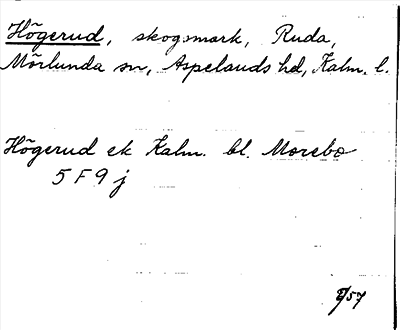 Högerud, skogsmark, Ruda,
Mörlunda sn, Aspelands hd, Kalm. l.
Högerud ek Kalm. bl. Morebo
5 F 9 j
/57